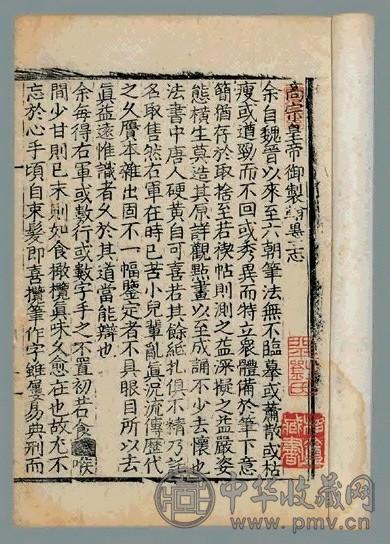 高宗皇帝御製翰墨志
余自魏晉以來至六朝筆法無不臨摹或蕭散或枯
瘦或遒勁而不回或秀異而特立衆體備於筆下意
簡猶存於取捨至若禊帖則測之益深擬之益嚴姿
態橫生莫造其原詳觀點畫以至成誦不少去懷也
法書中唐人硬黃自可喜若其餘紙札俱不精乃託
名取售然右軍在時已苦小兒輩亂真況流傳歷代
之久贋本雜出固不一幅鑒定者不具眼目所以去
真益遠惟識者久於其道當能辯也
余每得右軍或數行或數字手之不置初若食喉
間少甘則已末則如食橄欖真味久愈在也故尤不
忘於心手頃自束髮即喜攬筆作字雖屢易典刑而
藏書
中华收藏网
www.pmv.cn